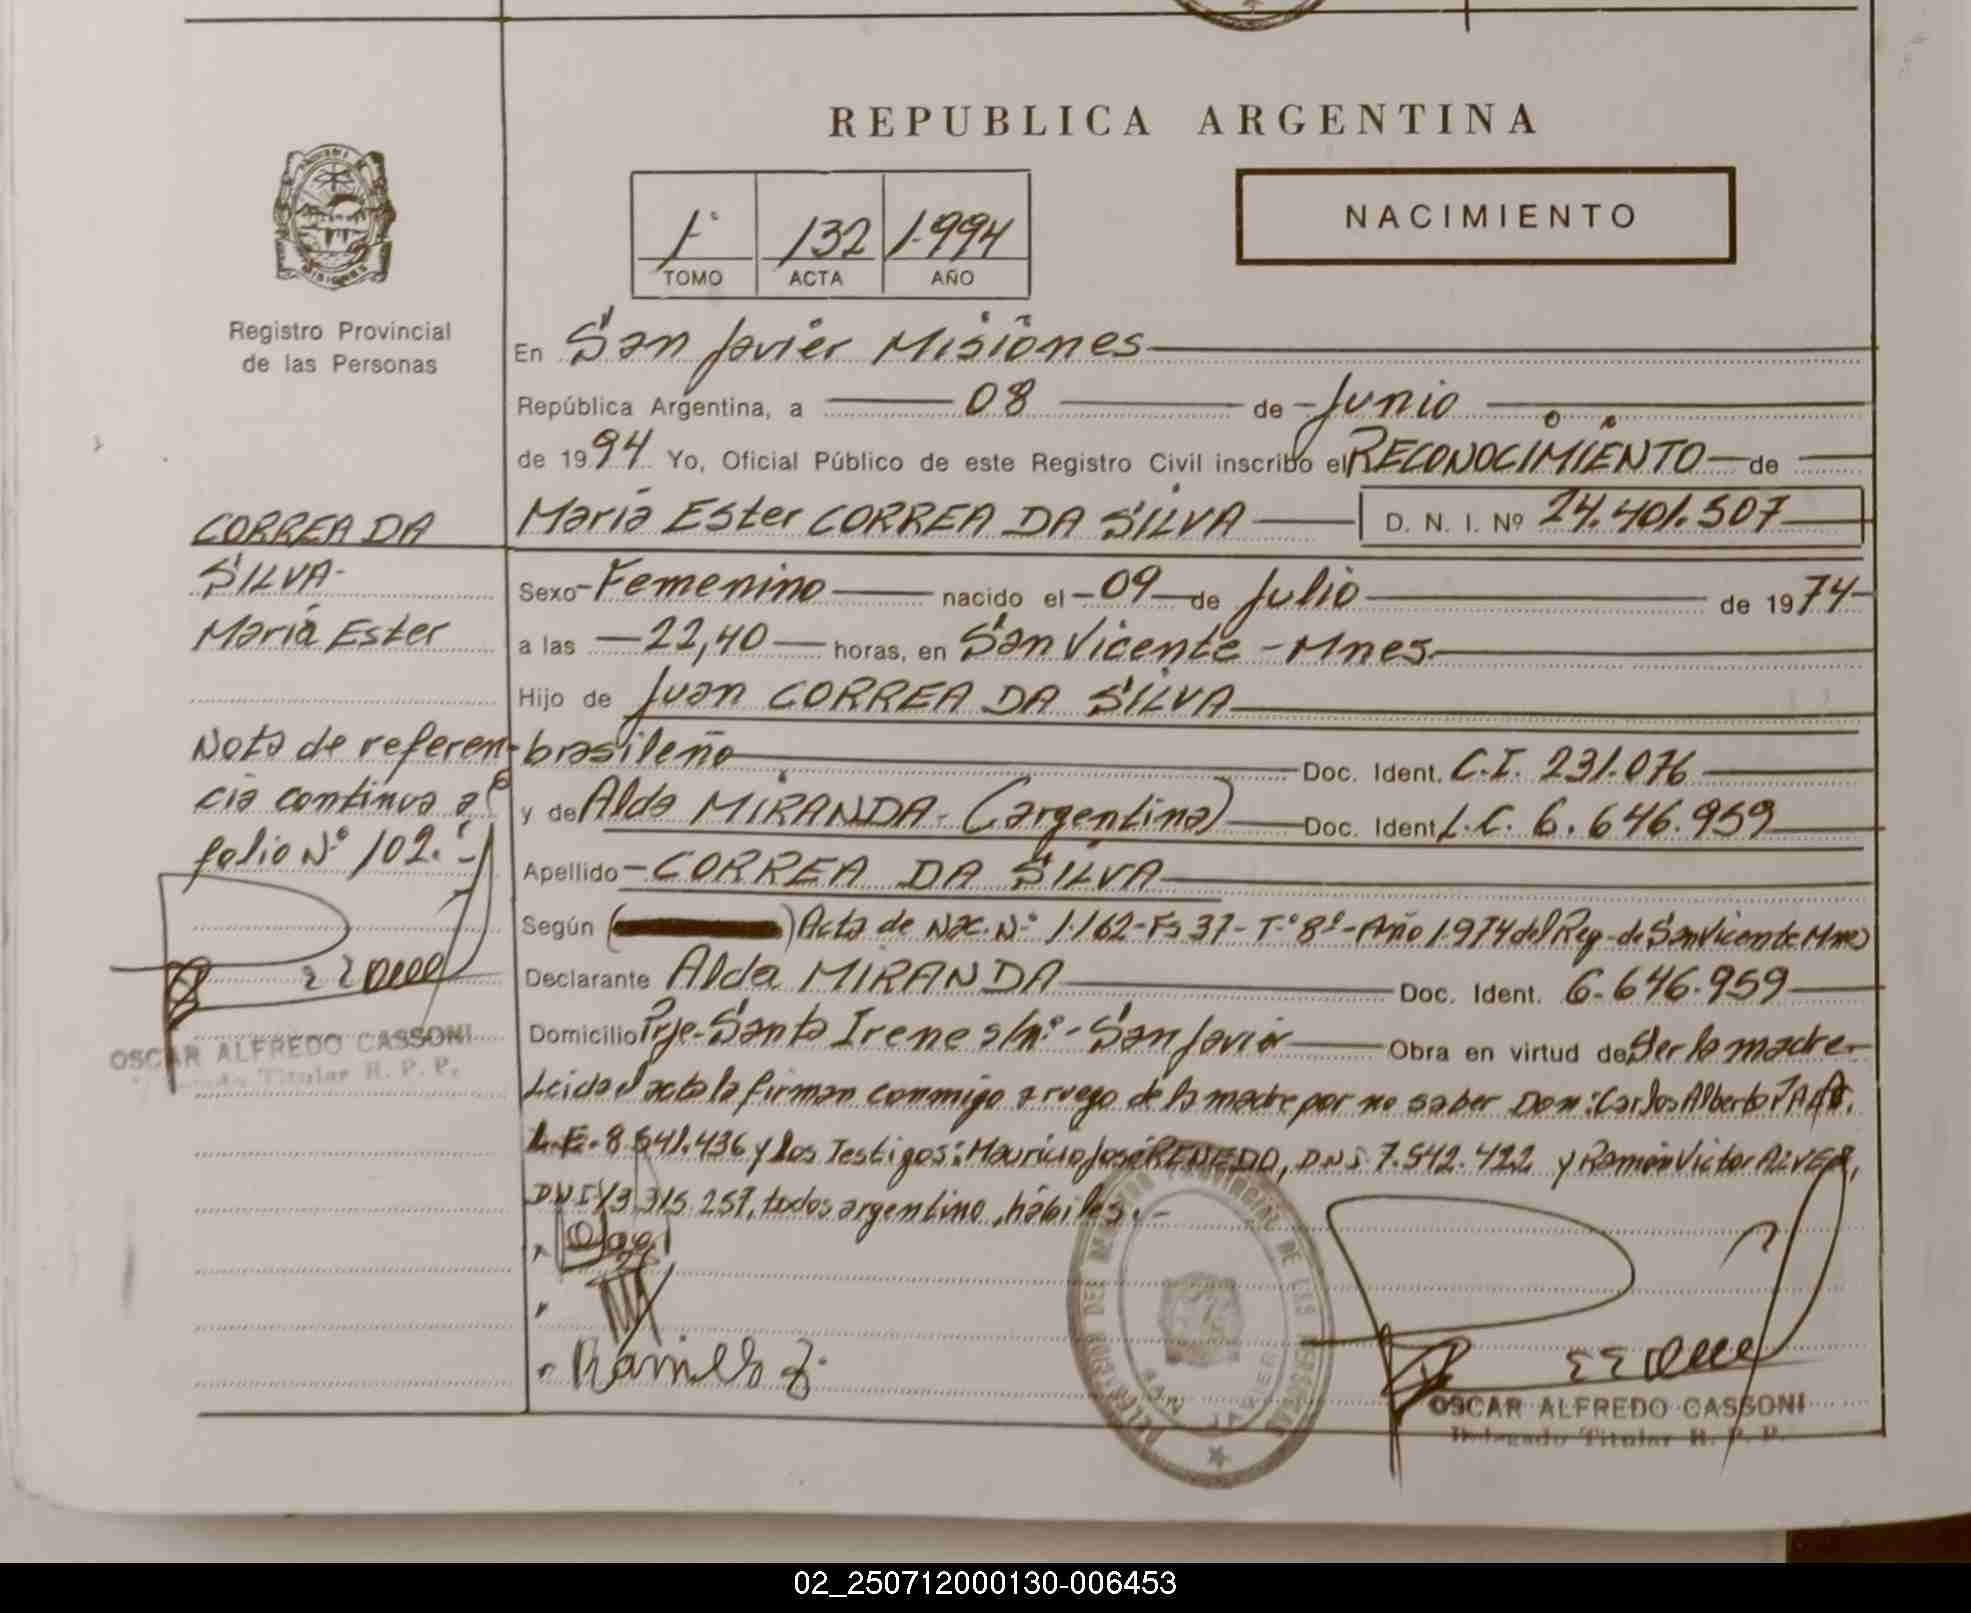 REPUBLICA ARGENTINA
NACIMIENTO
1º 132 1.994
TOMO ACTA AÑO
Registro Provincial
de las Personas
En San Javier Misiones
República Argentina, a 08 de Junio
de 1994 Yo, Oficial Público de este Registro Civil inscribo el RECONOCIMIENTO de
María Ester CORREA DA SILVA D. N. I. Nº 24.401.507
CORREA DA
SILVA-
María Ester
Sexo Femenino nacido el 09 de Julio de 1974
a las 22,40 horas, en San Vicente - Mnes.
Hijo de Juan CORREA DA SILVA
brasileño Doc. Ident. C.I. 231.076
y de Alda MIRANDA - (argentina) Doc. Ident. L.C. 6.646.959
Nota de referen-
cia continua al
folio Nº 102.-
Apellido CORREA DA SILVA
Según ( ) Acta de Nac. Nº 1.162-Fs 37-Tº 8º-Año 1.974 del Reg. de San Vicente Mnes
Declarante Alda MIRANDA Doc. Ident. 6.646.959
Domicilio Pje. Santa Irene s/nº.- San Javier Obra en virtud de Ser la madre.
OSCAR ALFREDO CASSONI
Delegado Titular R. P. P.
Leida el acta la firman conmigo a ruego de la madre por no saber Don: Carlos Alberto
L.E. 8.541.436 y los Testigos: Mauricio José RENEDO, DNI 7.542.422 y Ramón Victor ALVEZ,
DNI 13.315.257, todos argentino, hábiles.-
DELEGACION DEL REGISTRO PROVINCIAL DE LAS PERSONAS
SAN JAVIER
OSCAR ALFREDO CASSONI
Delegado Titular R. P. P.
02_250712000130-006453